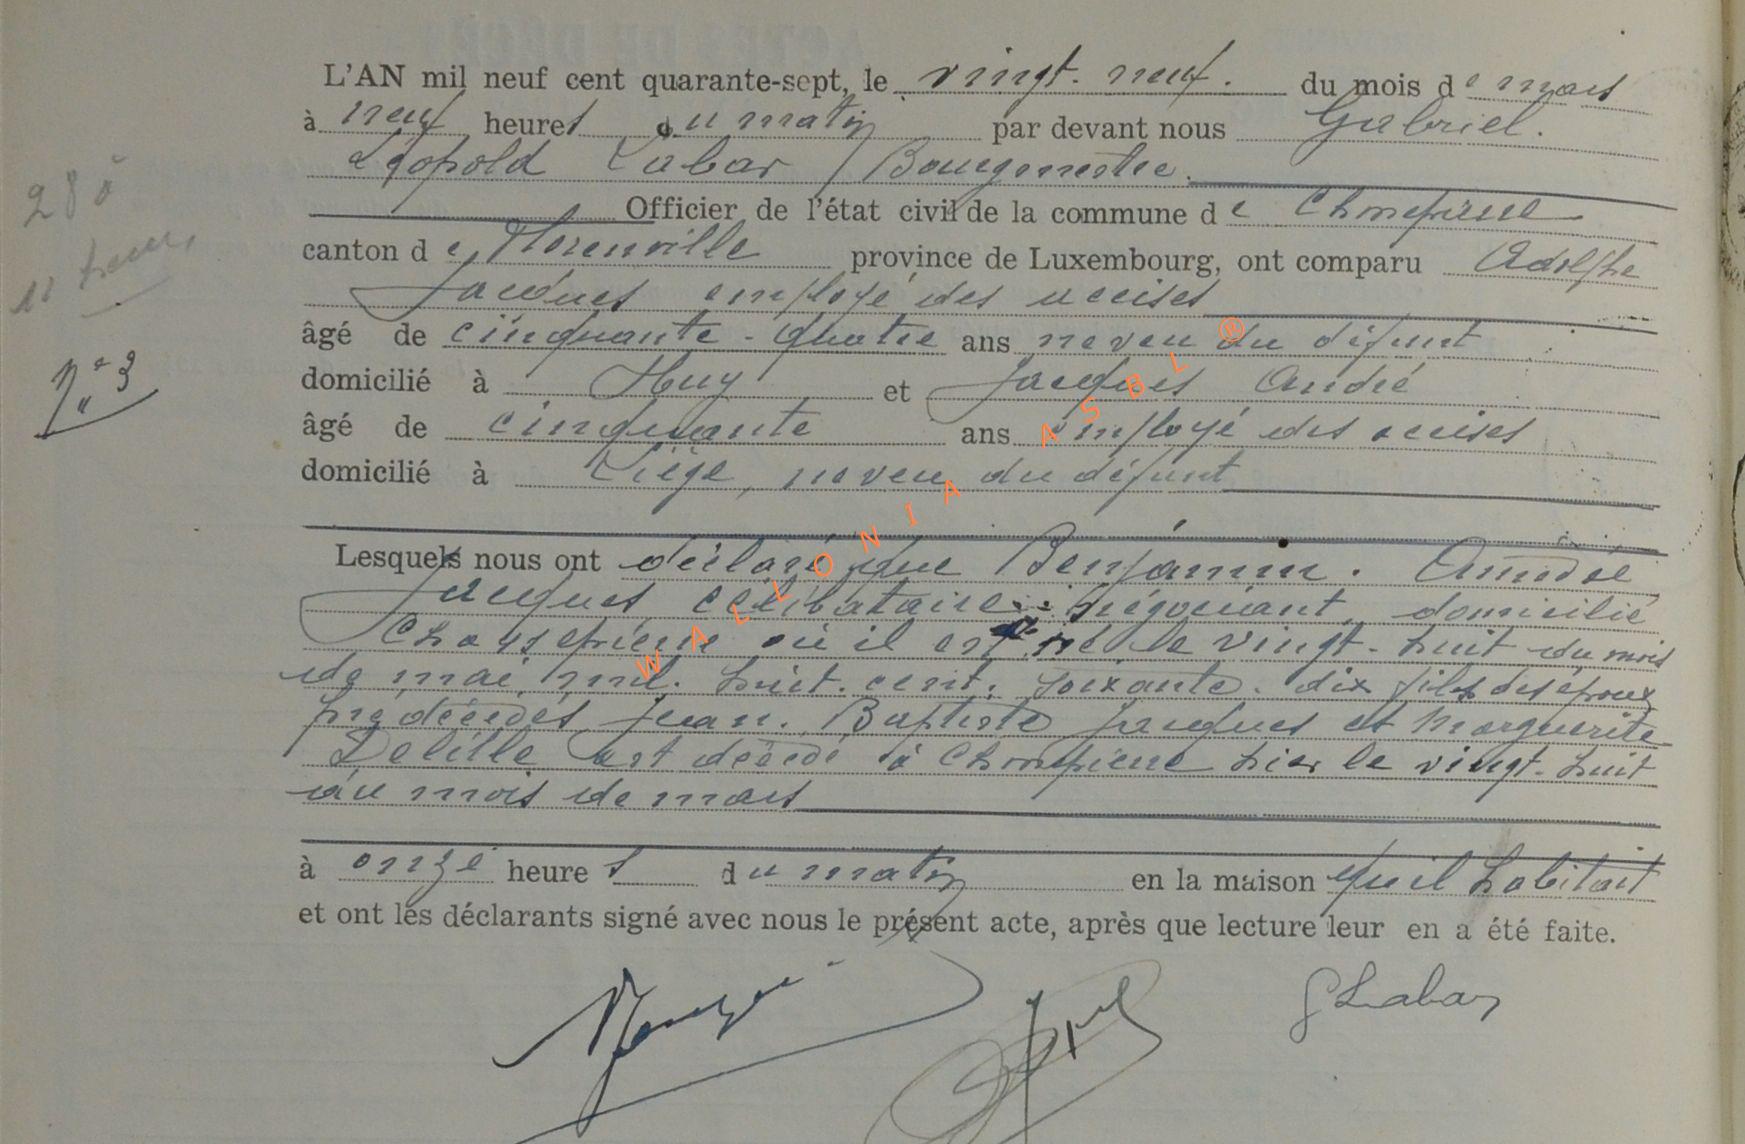 L'AN mil neuf cent quarante-sept, le vingt-neuf. du mois de mars
à neuf heures du matin par devant nous Gabriel.
Léopold Labar, Bourgmestre.
Officier de l'état civil de la commune de Chassepierre
canton de Florenville province de Luxembourg, ont comparu Adolphe
Jacques employé des accises
âgé de cinquante-quatre ans neveu du défunt
domicilié à Huy et Jacques André
âgé de cinquante ans employé des accises
domicilié à Liège, neveu du défunt
Lesquels nous ont déclaré que Benjamin. Amédée
Jacques célibataire négociant domicilié
Chassepierre où il est né le vingt-huit du mois
de mai mil. huit. cent. soixante. dix fils des époux
prédécédés Jean. Baptiste Jacques et Marguerite
Delille est décédé à Chassepierre hier le vingt-huit
du mois de mars
à onze heures du matin en la maison qu'il habitait
et ont les déclarants signé avec nous le présent acte, après que lecture leur en a été faite.
GLabar
28 à
11 heures
N° 3
WALLONIA ASBL ®